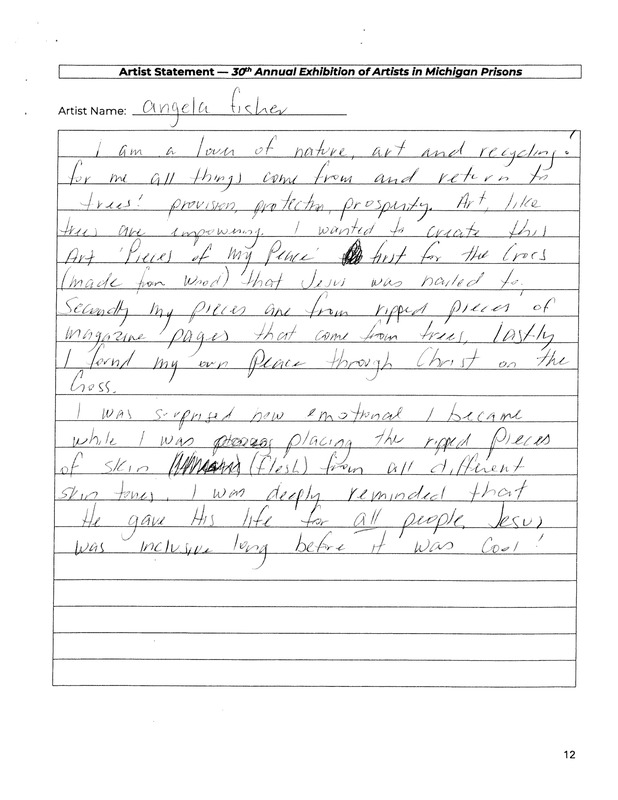 Artist Statement — 30th Annual Exhibition of Artists in Michigan Prisons
Artist Name: angela fisher
I am a lover of nature, art and recycling.
for me all things come from and return to
trees! provision, protection, prosperity. Art, like
trees are empowering. I wanted to create this
Art 'Pieces of my Peace' first for the Cross
(made from wood) that Jesus was nailed to.
Secondly my pieces are from ripped pieces of
magazine pages that come from trees, lastly
I found my own Peace through Christ on the
Cross.
I was surprised how emotional I became
while I was placing the ripped pieces
of skin (flesh) from all different
skin tones. I was deeply reminded that
He gave His life for all people. Jesus
was inclusive long before it was cool!
12